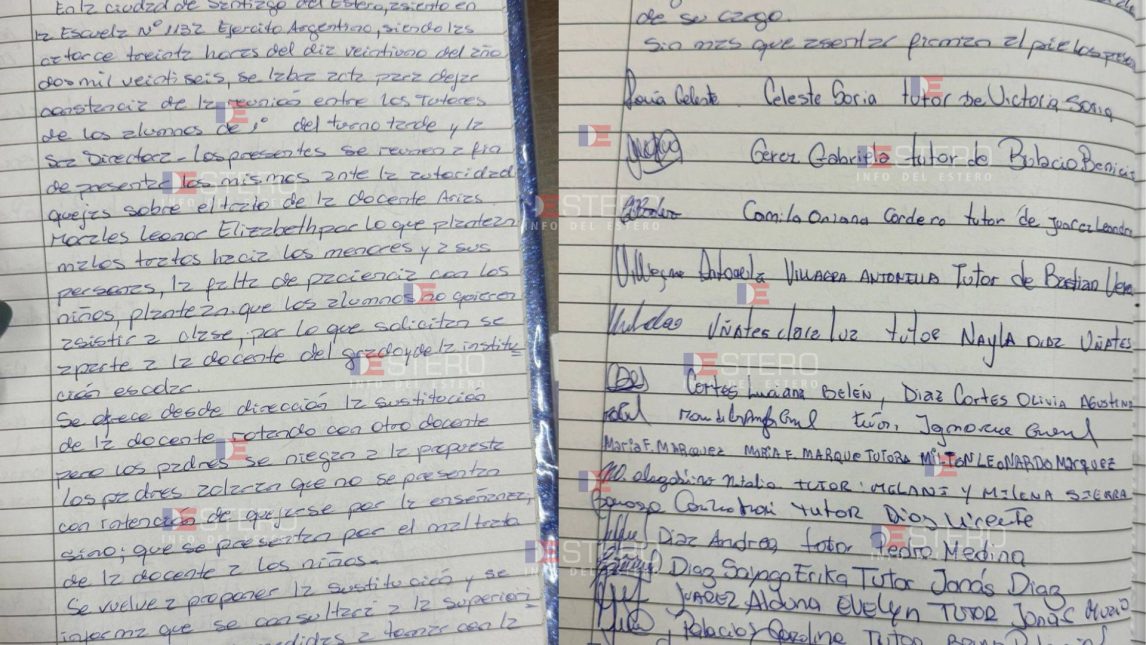 En la ciudad de Santiago del Estero, asiento en
la Escuela N° 1132 Ejercito Argentino, siendo las
catorce treinta horas del dia veintiuno del año
dos mil veintiseis, se labra acta para dejar
constancia de la reunió entre los Tutores
de los alumnos de 1° del turno tarde y la
Sra Directora - los presentes se reunen a fin
de presentar los mismos ante la autoridad
quejas sobre el trato de la docente Arias
Morales Leonor Elizabeth por lo que plantean
malos tratos hacia los menores y a sus
personas, la falta de paciencia con los
niños, plantean que los alumnos no quieren
asistir a clase, por lo que solicitan se
aparte a la docente del grado y de la institu-
ción escolar.
Se ofrece desde dirección la sustitucion
de la docente, rotando con otro docente
pero los padres se niegan a la propuesta
los padres aclaran que no se presentan
con intencion de quejarse por la enseñanza,
sino; que se presentan por el maltrato
de la docente a los niños.
Se vuelve a proponer la sustitució y se
informa que se consultara a la superiori
a tomar con la
de su cargo.
Sin mas que asentar firman al pie los presen
Soria Celeste Celeste Soria tutor de Victoria Soria
Gerez Gabriela tutor de Bulacio Benicio
Camila Oriana Cordero tutor de Juarez Leandro
Villegra Antonela VILLAGRA ANTONELLA Tutor de Bastian Vera
Uñates Clara Luz tutor NAYLA DIAZ UÑATES
Cortes Luciana Belén, Diaz Cortes Olivia Agustina
Maria F. MARQUEZ MARIA F. MARQUE TUTORA MILTON LEONARDO MARQUEZ
Natalia TUTOR: MELANI Y MILENA SIERRA
tutor Dios Vicente
Diaz Andrea tutor Pedro Medina
Diaz Erika Tutor Jonás Diaz
JUAREZ Aldana EVELYN TUTOR Jonás
Palacios Carolina Tutor
DESTERO
INFO DEL ESTERO